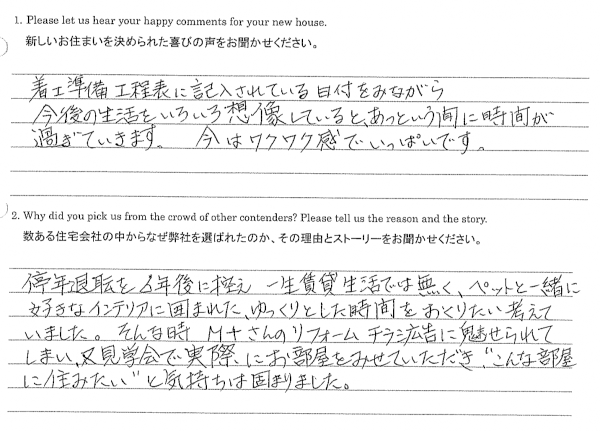 1. Please let us hear your happy comments for your new house.
新しいお住まいを決められた喜びの声をお聞かせください。
着工準備工程表に記入されている日付をみながら
今後の生活をいろいろ想像していると、あっという間に時間が
過ぎていきます。 今はワクワク感でいっぱいです。
2. Why did you pick us from the crowd of other contenders? Please tell us the reason and the story.
数ある住宅会社の中からなぜ弊社を選ばれたのか、その理由とストーリーをお聞かせください。
停年退転を 年後に控え 一生賃貸生活では無く、ペットと一緒に
好きなインテリアに囲まれた、ゆっくりとした時間をおくりたい考えて
いました。そんな時 M+さんのリフォームチラシ広告に魅せられて
しまい、又見学会で実際にお部屋をみせていただき、"こんな部屋
に住みたい"と気持ちは固まりました。